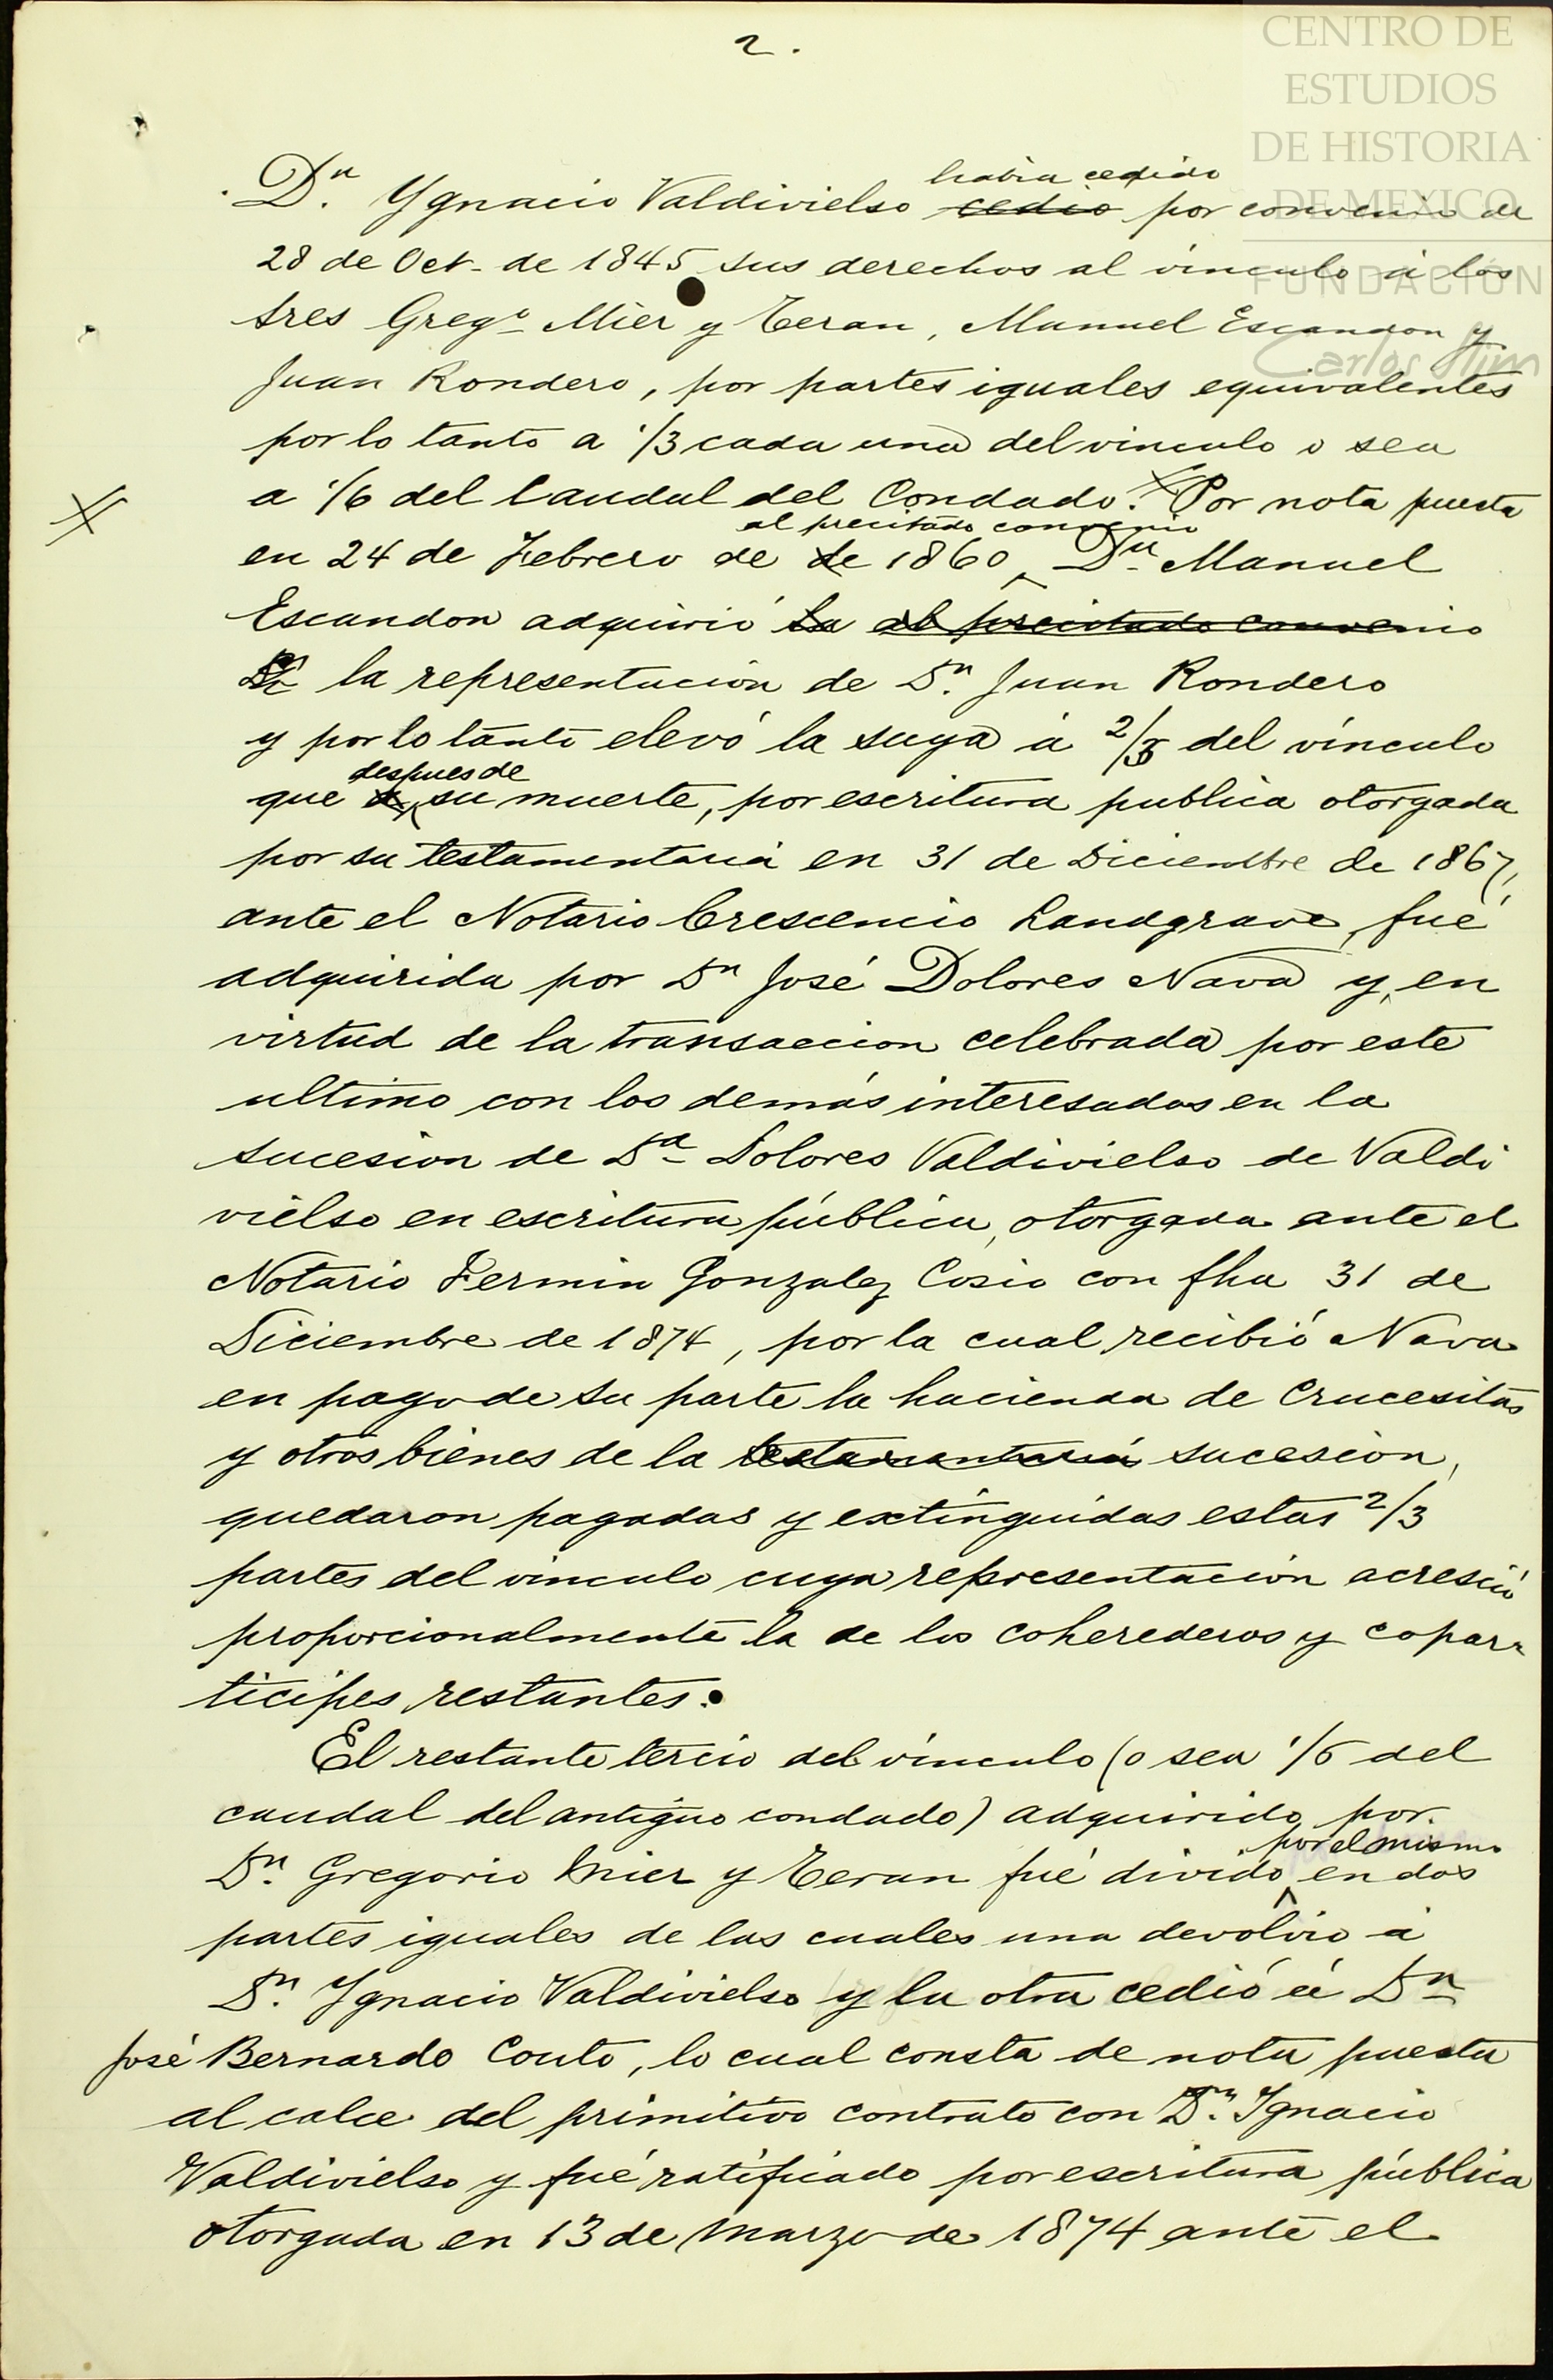 2.
CENTRO DE
ESTUDIOS
DE HISTORIA
DE MEXICO
FUNDACIÓN
Carlos Slim
había cedido
Dn. Ygnacio Valdivielso cedió por convenio de
28 de Oct. de 1845 sus derechos al vínculo á los
tres Grego Mier y Teran, Manuel Escandon y
Juan Rondero, por partes iguales equivalentes
por lo tanto a 1/3 cada una del vinculo o sea
a 1/6 del Caudal del Condado. Por nota puesta
al precitado convenio
en 24 de Febrero de de 1860, Dn Manuel
Escandon adquirió la al precitado convenio
la representación de Dn. Juan Rondero
y por lo tanto elevó la suya á 2/3 del vínculo
despues de
que a su muerte, por escritura publica otorgada
por su testamentaria en 31 de Diciembre de 1867,
ante el Notario Crescencio Landgrave, fué
adquirida por Dn José Dolores Nava y, en
virtud de la transaccion celebrada por este
ultimo con los demás interesados en la
sucesion de Da Dolores Valdivielso de Valdi
vielso en escritura pública, otorgada ante el
Notario Fermin Gonzalez Cosio con fha 31 de
Diciembre de 1874, por la cual recibió Nava
en pago de su parte la hacienda de Crucesitas
y otros bienes de la testamentaria sucesion,
quedaron pagadas y extinguidas estas 2/3
partes del vinculo cuya representación acresció
proporcionalmente la de los coherederos y copar-
ticipes restantes.
El restante tercio del vínculo (o sea 1/6 del
caudal del antiguo condado) adquirido por
por el mismo
Dn. Gregorio Mier y Teran fué divido en dos
partes iguales de las cuales una devolvio á
Dn. Ygnacio Valdivielso y la otra cedió á Dn
José Bernardo Couto, lo cual consta de nota puesta
al calce del primitivo contrato con Dn. Ignacio
Valdivielso y fué ratificado por escritura pública
otorgada en 13 de Marzo de 1874 ante el